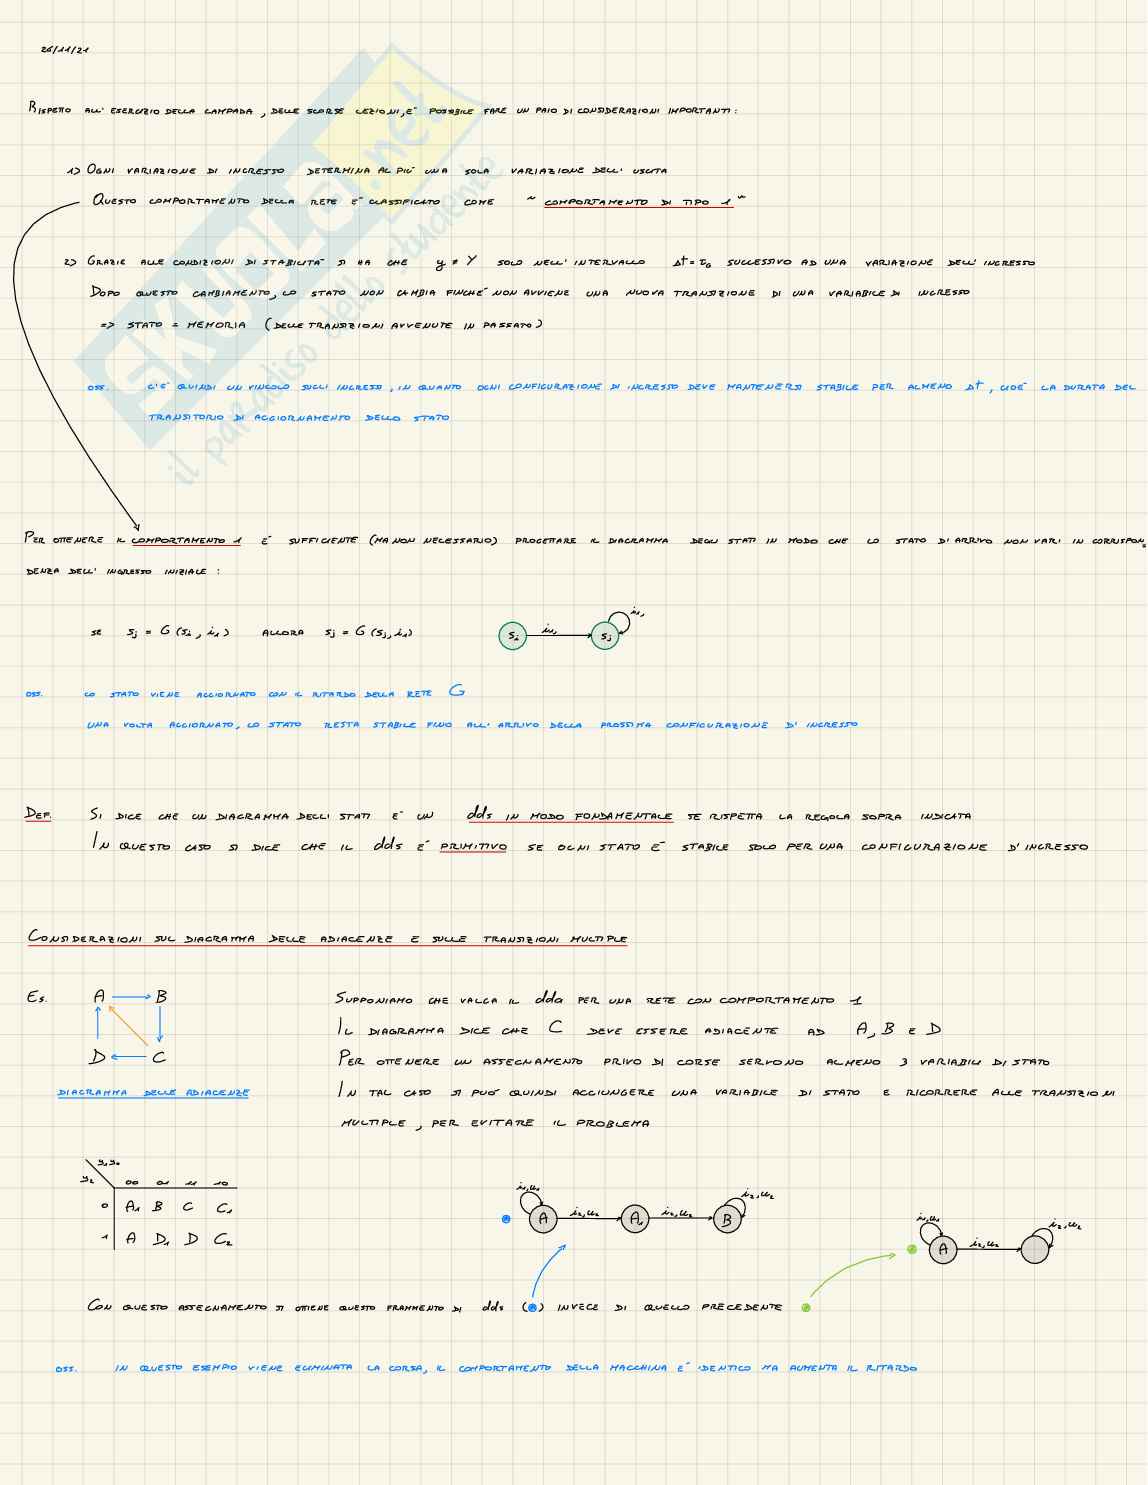 26/11/21
RISPETTO ALL' ESERCIZIO DELLA LAMPADA, DELLE SCORSE LEZIONI, E' POSSIBILE FARE UN PAIO DI CONSIDERAZIONI IMPORTANTI:
1) OGNI VARIAZIONE DI INGRESSO DETERMINA AL PIU' UNA SOLA VARIAZIONE DELL' USCITA
QUESTO COMPORTAMENTO DELLA RETE E' CLASSIFICATO COME " COMPORTAMENTO DI TIPO 1 "
2) GRAZIE ALLE CONDIZIONI DI STABILITA' SI HA CHE y ≠ Y SOLO NELL' INTERVALLO Δt = τG SUCCESSIVO AD UNA VARIAZIONE DELL' INGRESSO
DOPO QUESTO CAMBIAMENTO, LO STATO NON CAMBIA FINCHE' NON AVVIENE UNA NUOVA TRANSIZIONE DI UNA VARIABILE DI INGRESSO
=> STATO = MEMORIA (DELLE TRANSIZIONI AVVENUTE IN PASSATO)
OSS. C'E' QUINDI UN VINCOLO SUGLI INGRESSI, IN QUANTO OGNI CONFIGURAZIONE DI INGRESSO DEVE MANTENERSI STABILE PER ALMENO Δt, CIOE' LA DURATA DEL
TRANSITORIO DI AGGIORNAMENTO DELLO STATO
PER OTTENERE IL COMPORTAMENTO 1 E' SUFFICIENTE (MA NON NECESSARIO) PROGETTARE IL DIAGRAMMA DEGLI STATI IN MODO CHE LO STATO D'ARRIVO NON VARI IN CORRISPON-
DENZA DELL' INGRESSO INIZIALE :
SE Sj = G (Si, i1) ALLORA Sj = G (Sj, i1)
Si i1, Sj i1,
OSS. LO STATO VIENE AGGIORNATO CON IL RITARDO DELLA RETE G
UNA VOLTA AGGIORNATO, LO STATO RESTA STABILE FINO ALL' ARRIVO DELLA PROSSIMA CONFIGURAZIONE D' INGRESSO
DEF. SI DICE CHE UN DIAGRAMMA DEGLI STATI E' UN dds IN MODO FONDAMENTALE SE RISPETTA LA REGOLA SOPRA INDICATA
IN QUESTO CASO SI DICE CHE IL dds E' PRIMITIVO SE OGNI STATO E' STABILE SOLO PER UNA CONFIGURAZIONE D'INGRESSO
CONSIDERAZIONI SUL DIAGRAMMA DELLE ADIACENZE E SULLE TRANSIZIONI MULTIPLE
ES. A B
D C
DIAGRAMMA DELLE ADIACENZE
SUPPONIAMO CHE VALGA IL dda PER UNA RETE CON COMPORTAMENTO 1
IL DIAGRAMMA DICE CHE C DEVE ESSERE ADIACENTE AD A, B E D
PER OTTENERE UN ASSEGNAMENTO PRIVO DI CORSE SERVONO ALMENO 3 VARIABILI DI STATO
IN TAL CASO SI PUO' QUINDI AGGIUNGERE UNA VARIABILE DI STATO E RICORRERE ALLE TRANSIZIONI
MULTIPLE, PER EVITARE IL PROBLEMA
y1y0
y2 00 01 11 10
0 A1 B C C1
1 A D1 D C2
i1,u1 A i2,u2 A1 i2,u2 B i2,u2
i1,u1 A i2,u2 i2,u2
CON QUESTO ASSEGNAMENTO SI OTTIENE QUESTO FRAMMENTO DI dds ( ) INVECE DI QUELLO PRECEDENTE
OSS. IN QUESTO ESEMPIO VIENE ELIMINATA LA CORSA, IL COMPORTAMENTO DELLA MACCHINA E' IDENTICO MA AUMENTA IL RITARDO
SKUOLA.net
il paradiso dello studente